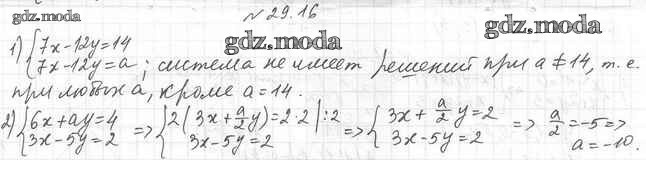 gdz.moda
№ 29.16
gdz.moda
gdz.moda
1) { 7x-12y=14
7x-12y=a ; система не имеет решений при a ≠ 14, т. е.
при любых a, кроме a = 14.
2) { 6x+ay=4 => { 2(3x+a/2y)=2·2 |:2 => { 3x+a/2y=2 => a/2=-5 =>
3x-5y=2 3x-5y=2 3x-5y=2 a=-10.